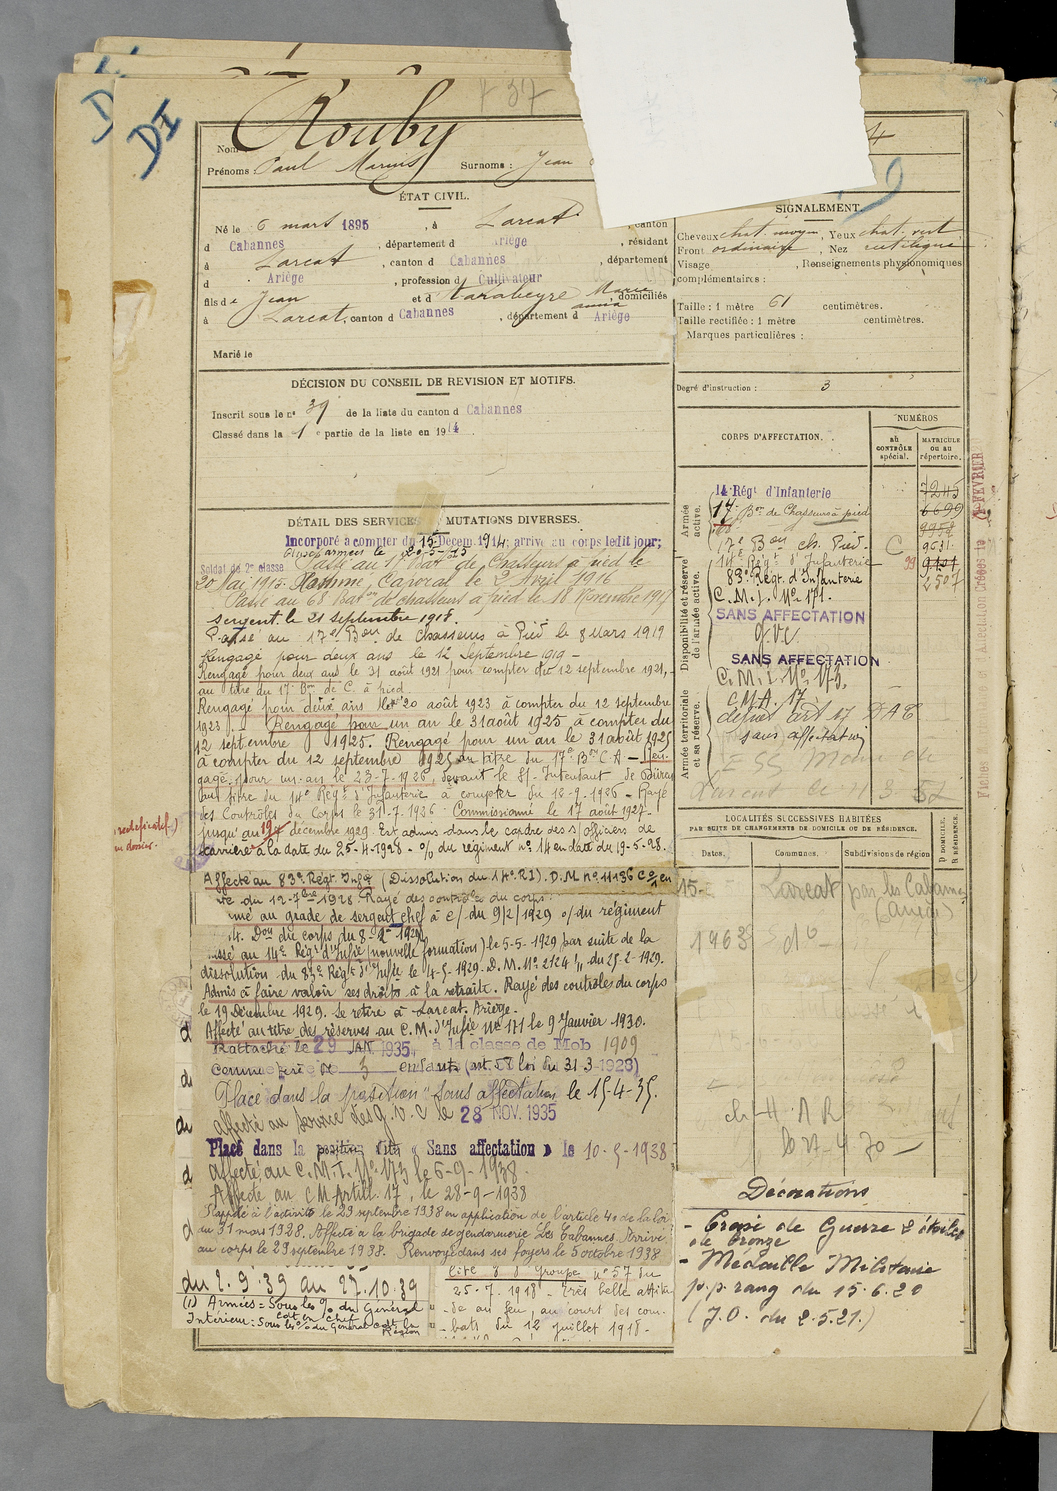 DI
737
Nom : Rouby
Prénoms : Paul Marius Surnoms : Jean
ÉTAT CIVIL.
Né le 6 mars 1895, à Larcat, canton
d Cabannes, département d Ariège, résidant
à Larcat, canton d Cabannes, département
d Ariège, profession d Cultivateur
fils de Jean et d Tarabeyre Marie
anna domiciliés
à Larcat, canton d Cabannes, département d Ariège
Marié le
DÉCISION DU CONSEIL DE REVISION ET MOTIFS.
Inscrit sous le nº 39 de la liste du canton d Cabannes
Classé dans la 1e partie de la liste en 1914.
DÉTAIL DES SERVICES MUTATIONS DIVERSES.
Incorporé à compter du 15 Décem. 1914; arrivé au corps ledit jour;
aux armées le 20-5-15
Soldat de 2e classe Passé au 17 Bat de Chasseurs à pied le
20 Mai 1915. Nommé Caporal le 2 Avril 1916
Passé au 68 Baton de chasseurs à pied le 18 Novembre 1917
sergent le 21 septembre 1918.
Passé au 17e Bon de Chasseurs à Pied le 8 Mars 1919
Rengagé pour deux ans le 12 Septembre 1919 -
Rengagé pour deux ans le 31 août 1921 pour compter du 12 septembre 1921,
au titre du 17 Bon de C. à pied
Rengagé pour deux ans le 20 août 1923 à compter du 12 septembre
1923. Rengagé pour un an le 31 août 1925 à compter du
12 septembre 1925. Rengagé pour un an le 31 août 1925
à compter du 12 septembre 1925 au titre du 17e Bon C.A - Ren-
gagé pour un an le 23-7-1926, devant le S/-Intendant de
au titre du 14e Régt d'Infanterie à compter du 12-9-1926 - Rayé
des Contrôles du Corps le 31-7-1926 Commissionné le 17 août 1927
jusqu'au 19 décembre 1929. Est admis dans le cadre des s/officiers de
carrière à la date du 25-4-1928 - o/o du régiment nº 14 en date du 19-5-28.
Affecté au 83e Régt Infie (Dissolution du 14e R.I). D.M nº 11136 en
te du 12-7-1928. Rayé des contrôles du corps
mé au grade de sergent chef à c/ du 9/2/1929 o/ du régiment
4. Don du corps du 8-2-1929
assé au 14e Régt d'Infie (nouvelle formation) le 5-5-1929 par suite de la
dissolution du 83e Régt d'Infie le 4-5-1929. D.M. Nº 2124 du 25-2-1929.
Admis à faire valoir ses droits à la retraite. Rayé des contrôles du corps
le 19 Décembre 1929. Se retire à Larcat. Ariège.
Affecté au titre des réserves au C.M. d'Infie Nº 171 le 9 Janvier 1930.
Rattaché le 29 JAN. 1935, à la classe de Mob 1909
comme père de 3 enfants (art. 58 loi du 31-3-1928)
Placé dans la position "Sans affectation" le 15-4-35.
affecté au service des G.V.C le 28 NOV. 1935
Placé dans la position dite « Sans affectation » le 10-5-1938
affecté au C.M.I. Nº 173 le 6-9-1938
Affecté au CM Artill. 17, le 28-9-1938
Rappelé à l'activité le 29 septembre 1938 en application de l'article 40 de la loi
du 31 mars 1928. Affecté à la brigade de gendarmerie Les Cabannes. Arrivé
au corps le 29 septembre 1938. Renvoyé dans ses foyers le 5 octobre 1938
du 2.9.39 au 27.10.39
(1) Armées = Sous les % du Général
Cdt en Chef
Intérieur : Sous les % du Général Cdt la
Région
cité à d Groupe nº 57 du
25.7.1918 - Très belle attitu
-de au feu, au court des com.
-bats du 12 juillet 1918-
4
SIGNALEMENT.
Cheveux chat. moyen, Yeux chat. vert
Front ordinaire, Nez rectiligne
Visage , Renseignements physionomiques
complémentaires :
Taille : 1 mètre 61 centimètres.
Taille rectifiée : 1 mètre centimètres.
Marques particulières :
Degré d'instruction : 3
CORPS D'AFFECTATION.
NUMÉROS
au CONTRÔLE spécial.
MATRICULE ou au répertoire.
Armée active.
Disponibilité et réserve de l'armée active.
Armée territoriale et sa réserve.
14 Régt d'Infanterie 7245
17 Bon de Chasseurs à pied 6699
68 9958
17e Bon ch. Pied. C 9631
14e Régt d'Infanterie 99 9121
83e Régt d'Infanterie 2507
C.M.I. Nº 171.
SANS AFFECTATION
G.V.C.
SANS AFFECTATION
C.M.I. Nº 173.
C.M.A. 17
sans affectation
LOCALITÉS SUCCESSIVES HABITÉES
PAR SUITE DE CHANGEMENTS DE DOMICILE OU DE RÉSIDENCE.
Dates. Communes. Subdivisions de région
D. DOMICILE. R. RÉSIDENCE.
15- Larcat par les Cabannes
(Ariège)
1963 do -
Décorations
- Croix de Guerre 2 étoiles
de bronze
- Médaille Militaire
p.p. rang du 15.6.20
(J.O. du 2.5.21.)